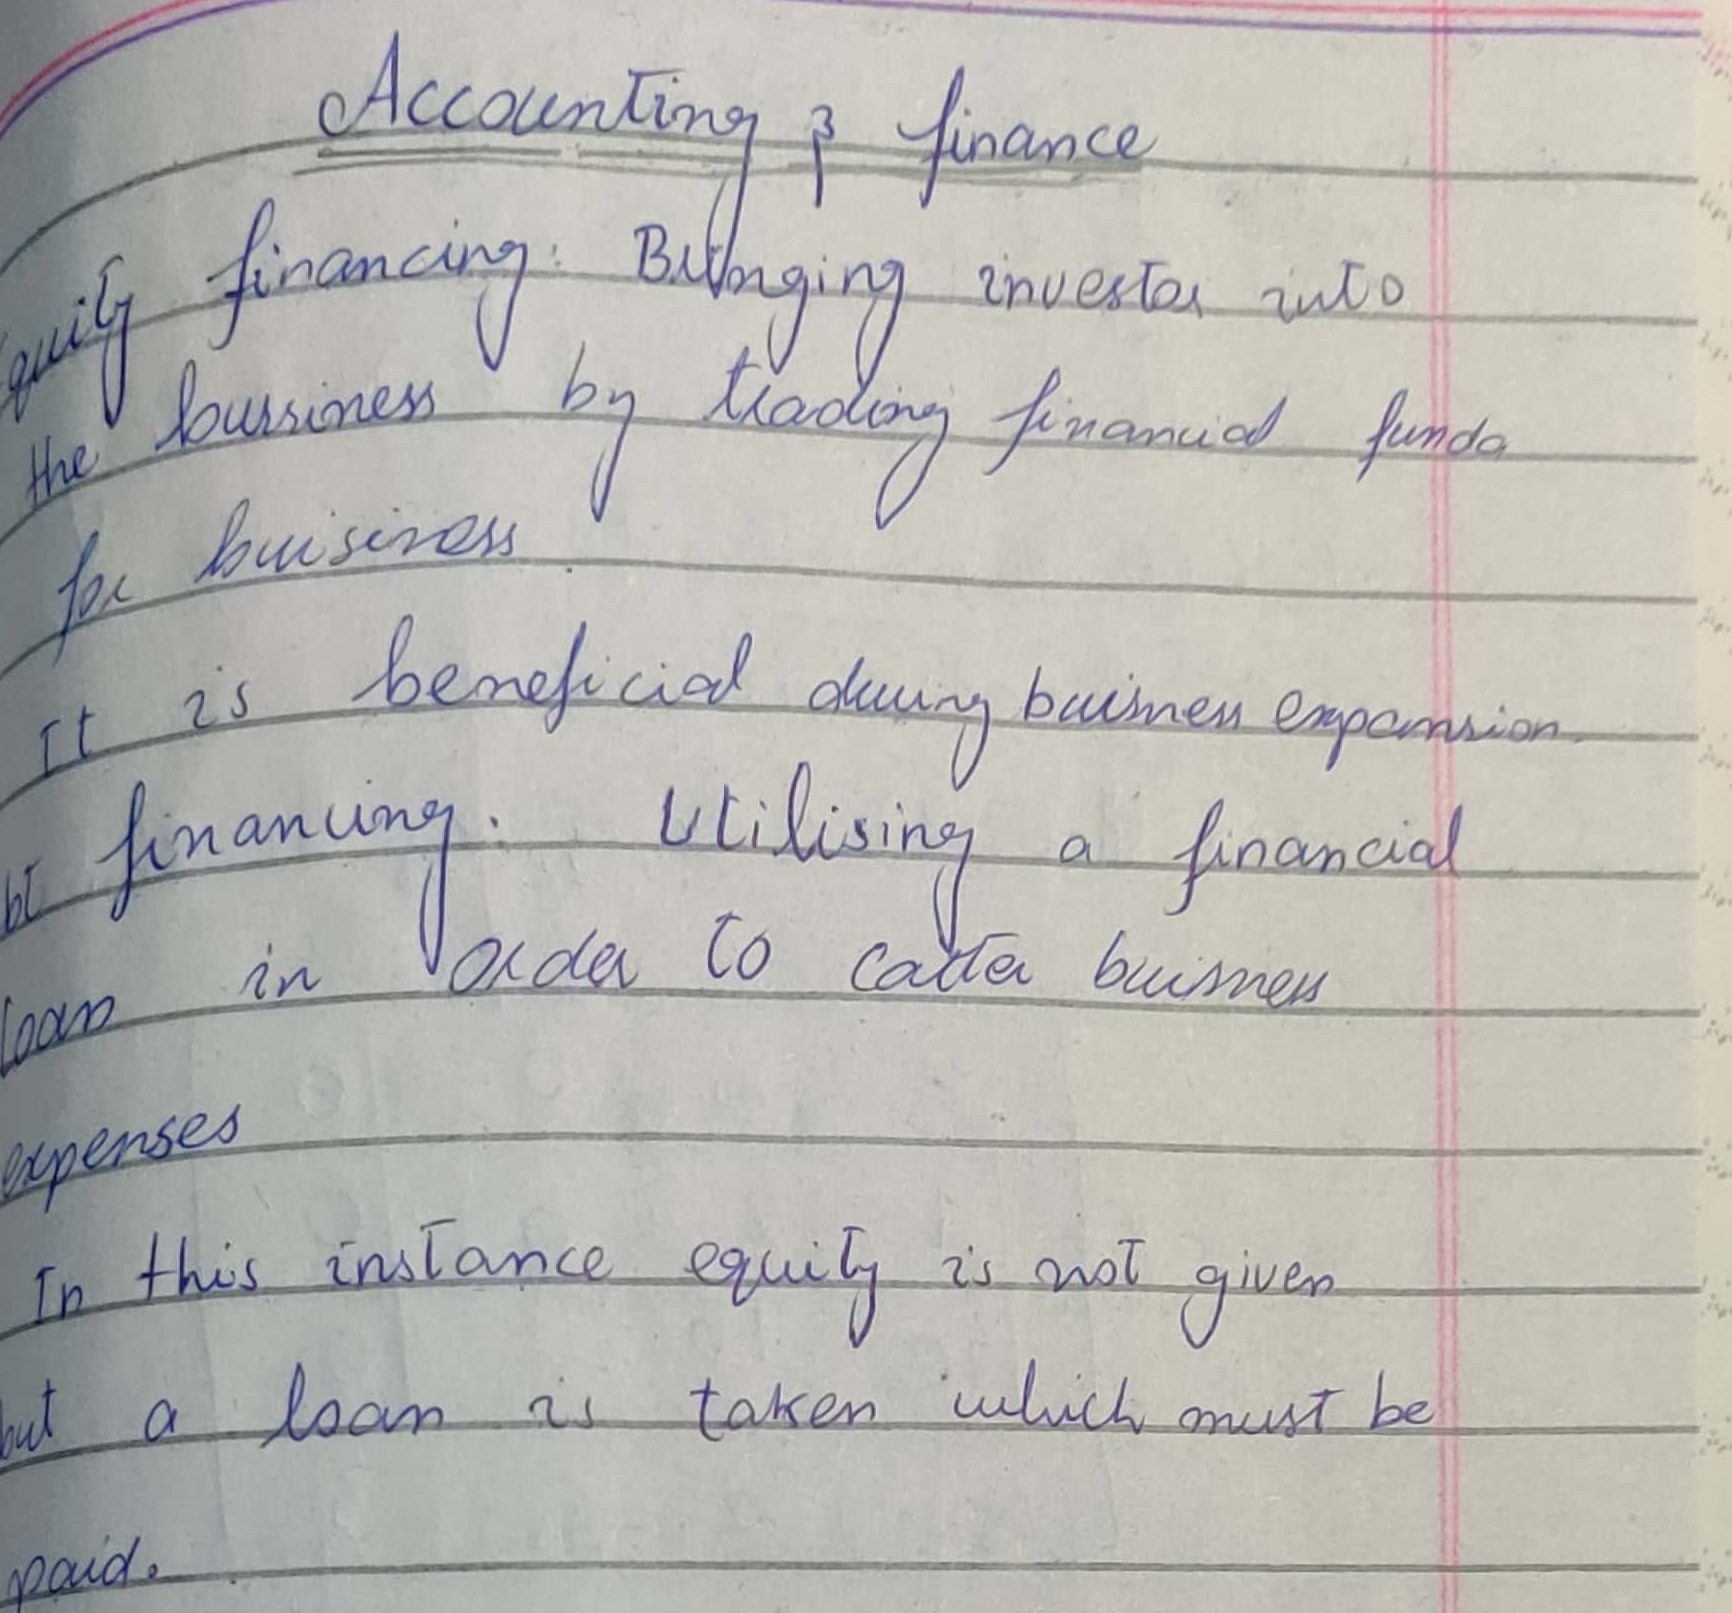 Accounting & finance
quity financing: Bringing investor into
the bussiness by trading financial funds
for buisiness
It is beneficial during buisness expansion.
bt financing: Utilising a financial
loan in order to cater buisness
expenses
In this instance equity is not given
but a loan is taken which must be
paid.